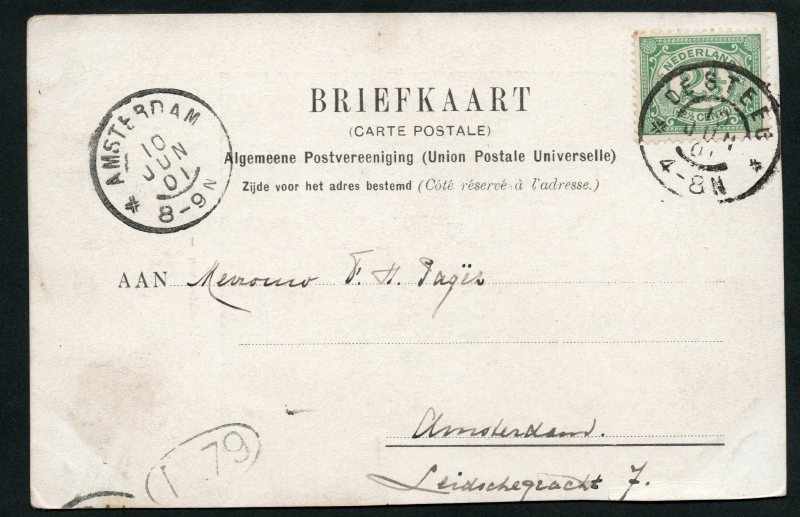 NEDERLAND
2½
2½ CENT
DE STEEG
JUN
01
4-8N
AMSTERDAM
10
JUN
01
8-9N
BRIEFKAART
(CARTE POSTALE)
Algemeene Postvereeniging (Union Postale Universelle)
Zijde voor het adres bestemd (Côté réservé à l'adresse.)
AAN Mevrouw F. H. Pagès
Amsterdam.
Leidschegracht 7.
79